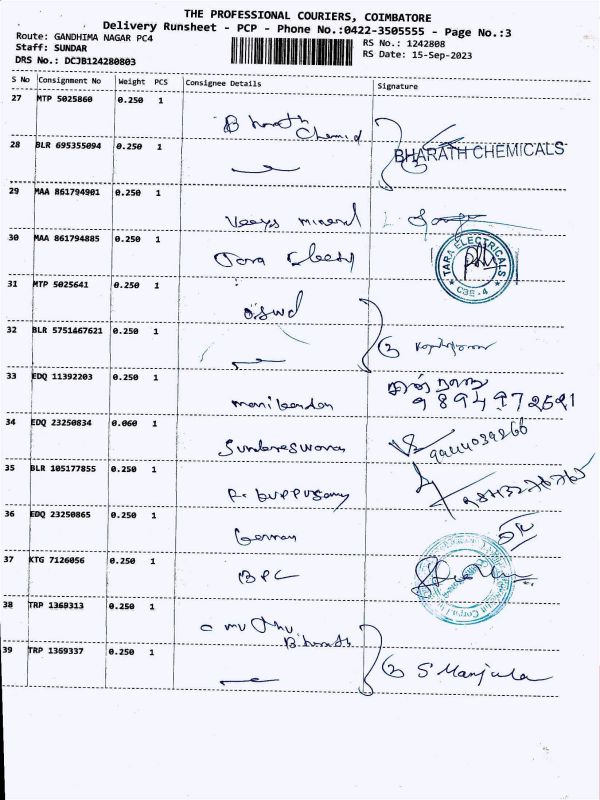 THE PROFESSIONAL COURIERS, COIMBATORE
Delivery Runsheet - PCP - Phone No.:0422-3505555 - Page No.:3
Route: GANDHIMA NAGAR PC4
Staff: SUNDAR
DRS No.: DCJB124280803
RS No.: 1242808
RS Date: 15-Sep-2023
S No Consignment No Weight PCS Consignee Details Signature
27 MTP 5025860 0.250 1 Bharath Chemid
28 BLR 695355094 0.250 1 BHARATH CHEMICALS
29 MAA 861794901 0.250 1 Veeys mineral
30 MAA 861794885 0.250 1 Tara TARA ELECTRICALS CBE-4
31 MTP 5025641 0.250 1
32 BLR 5751467621 0.250 1
33 EDQ 11392203 0.250 1 manikandan
34 EDQ 23250834 0.060 1 Sundareswaran
35 BLR 105177855 0.250 1
36 EDQ 23250865 0.250 1
37 KTG 7126056 0.250 1 BPC
38 TRP 1369313 0.250 1 amuthu Bharath
39 TRP 1369337 0.250 1 S Manjula